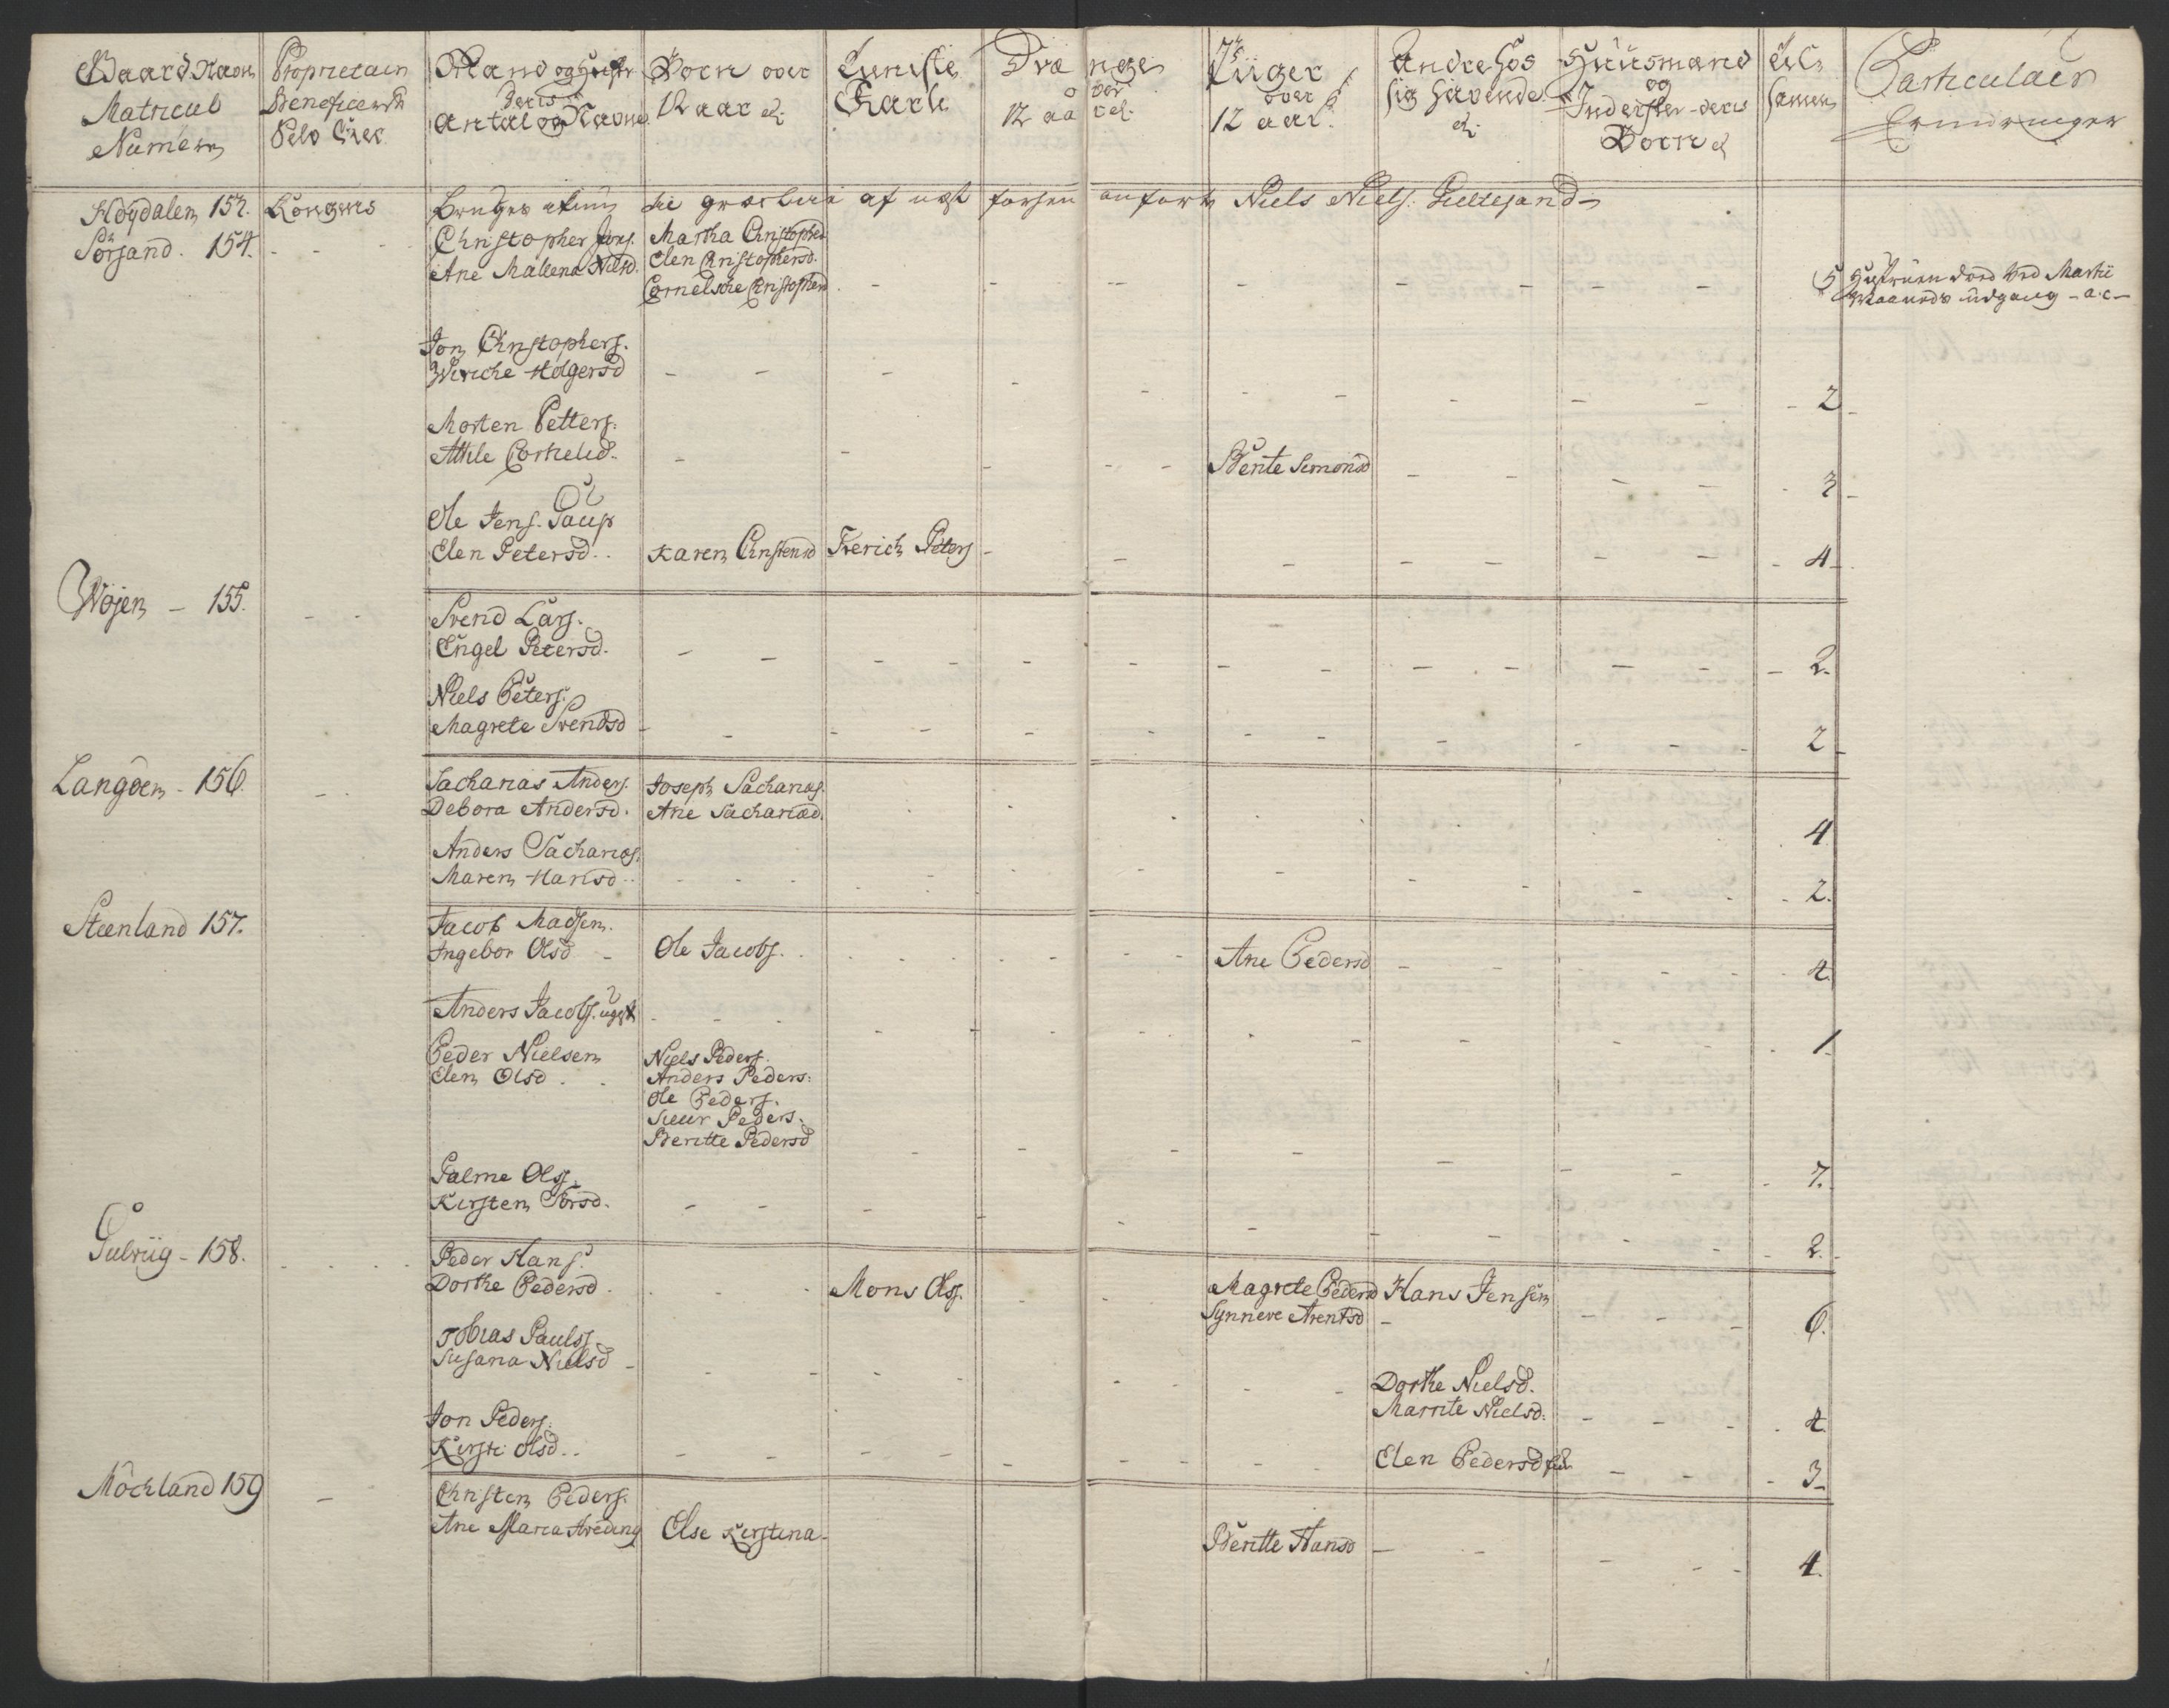 Gaard Navn Matricul Numern
Proprietair Beneficeret Selv Eier
Mand og Hustr deris antal og Navne
Børn over 12 aar
Tieniste Karle
Drænge over 12 aar
Piiger over 12 aar
Andre hos sig havende
Huusmænd og Inderster deris Børn
til samen
Particulair Erindringer
Høydalen 153. Kongens
Niels Niels. Sillesand
Sørsand. 154.
Christopher Jons. Martha Christophersd
Ane Mallena Nilsd. Elen Christophersd.
Cornelsche Christophersd
5 Hustruen død ved Martii
Maaneds udgang - a.c.
Jon Christophers.
Wiriche Holgersd
2
Morten Petters.
Athle Cornelid. Bente Simonsd
3
Ole Jens.
Elen Petersd. Karen Christensd Frerich Peters
4
Wøjen - 155.
Svend Lars.
Engel Petersd.
2.
Niels Peters.
Magrete Svendsd
2
Langøen - 156.
Sacharias Anders. Joseph Sacharias.
Debora Andersd. Ane Sachariad.
4
Anders Sacharias.
Maren Hansd
2.
Steenland 157.
Jacob Madsen.
Ingebor Olsd Ole Jacobs. Ane Pedersd
4
Anders Jacobs. ugft
1.
Peder Nielsen Niels Peders.
Elen Olsd Anders Peders.
Ole Peders.
Siuur Peders.
Beritte Pedersd
7.
Palme Ols.
Kirsten Torsd.
2.
Gulviig - 158.
Peder Hans.
Dorthe Pedersd Mons Ols. Magrete Pedersd Hans Jensen
Synneve Arentsd
6.
Tobias Pauls.
Susana Nielsd
Dorthe Nielsd.
Marrite Nielsd.
4
Jon Peders.
Kirsti Olsd. Elen Pedersd
3
Mochland 159
Christen Peders.
Ane Maria Else Kirstina. Beritte Hansd
4.